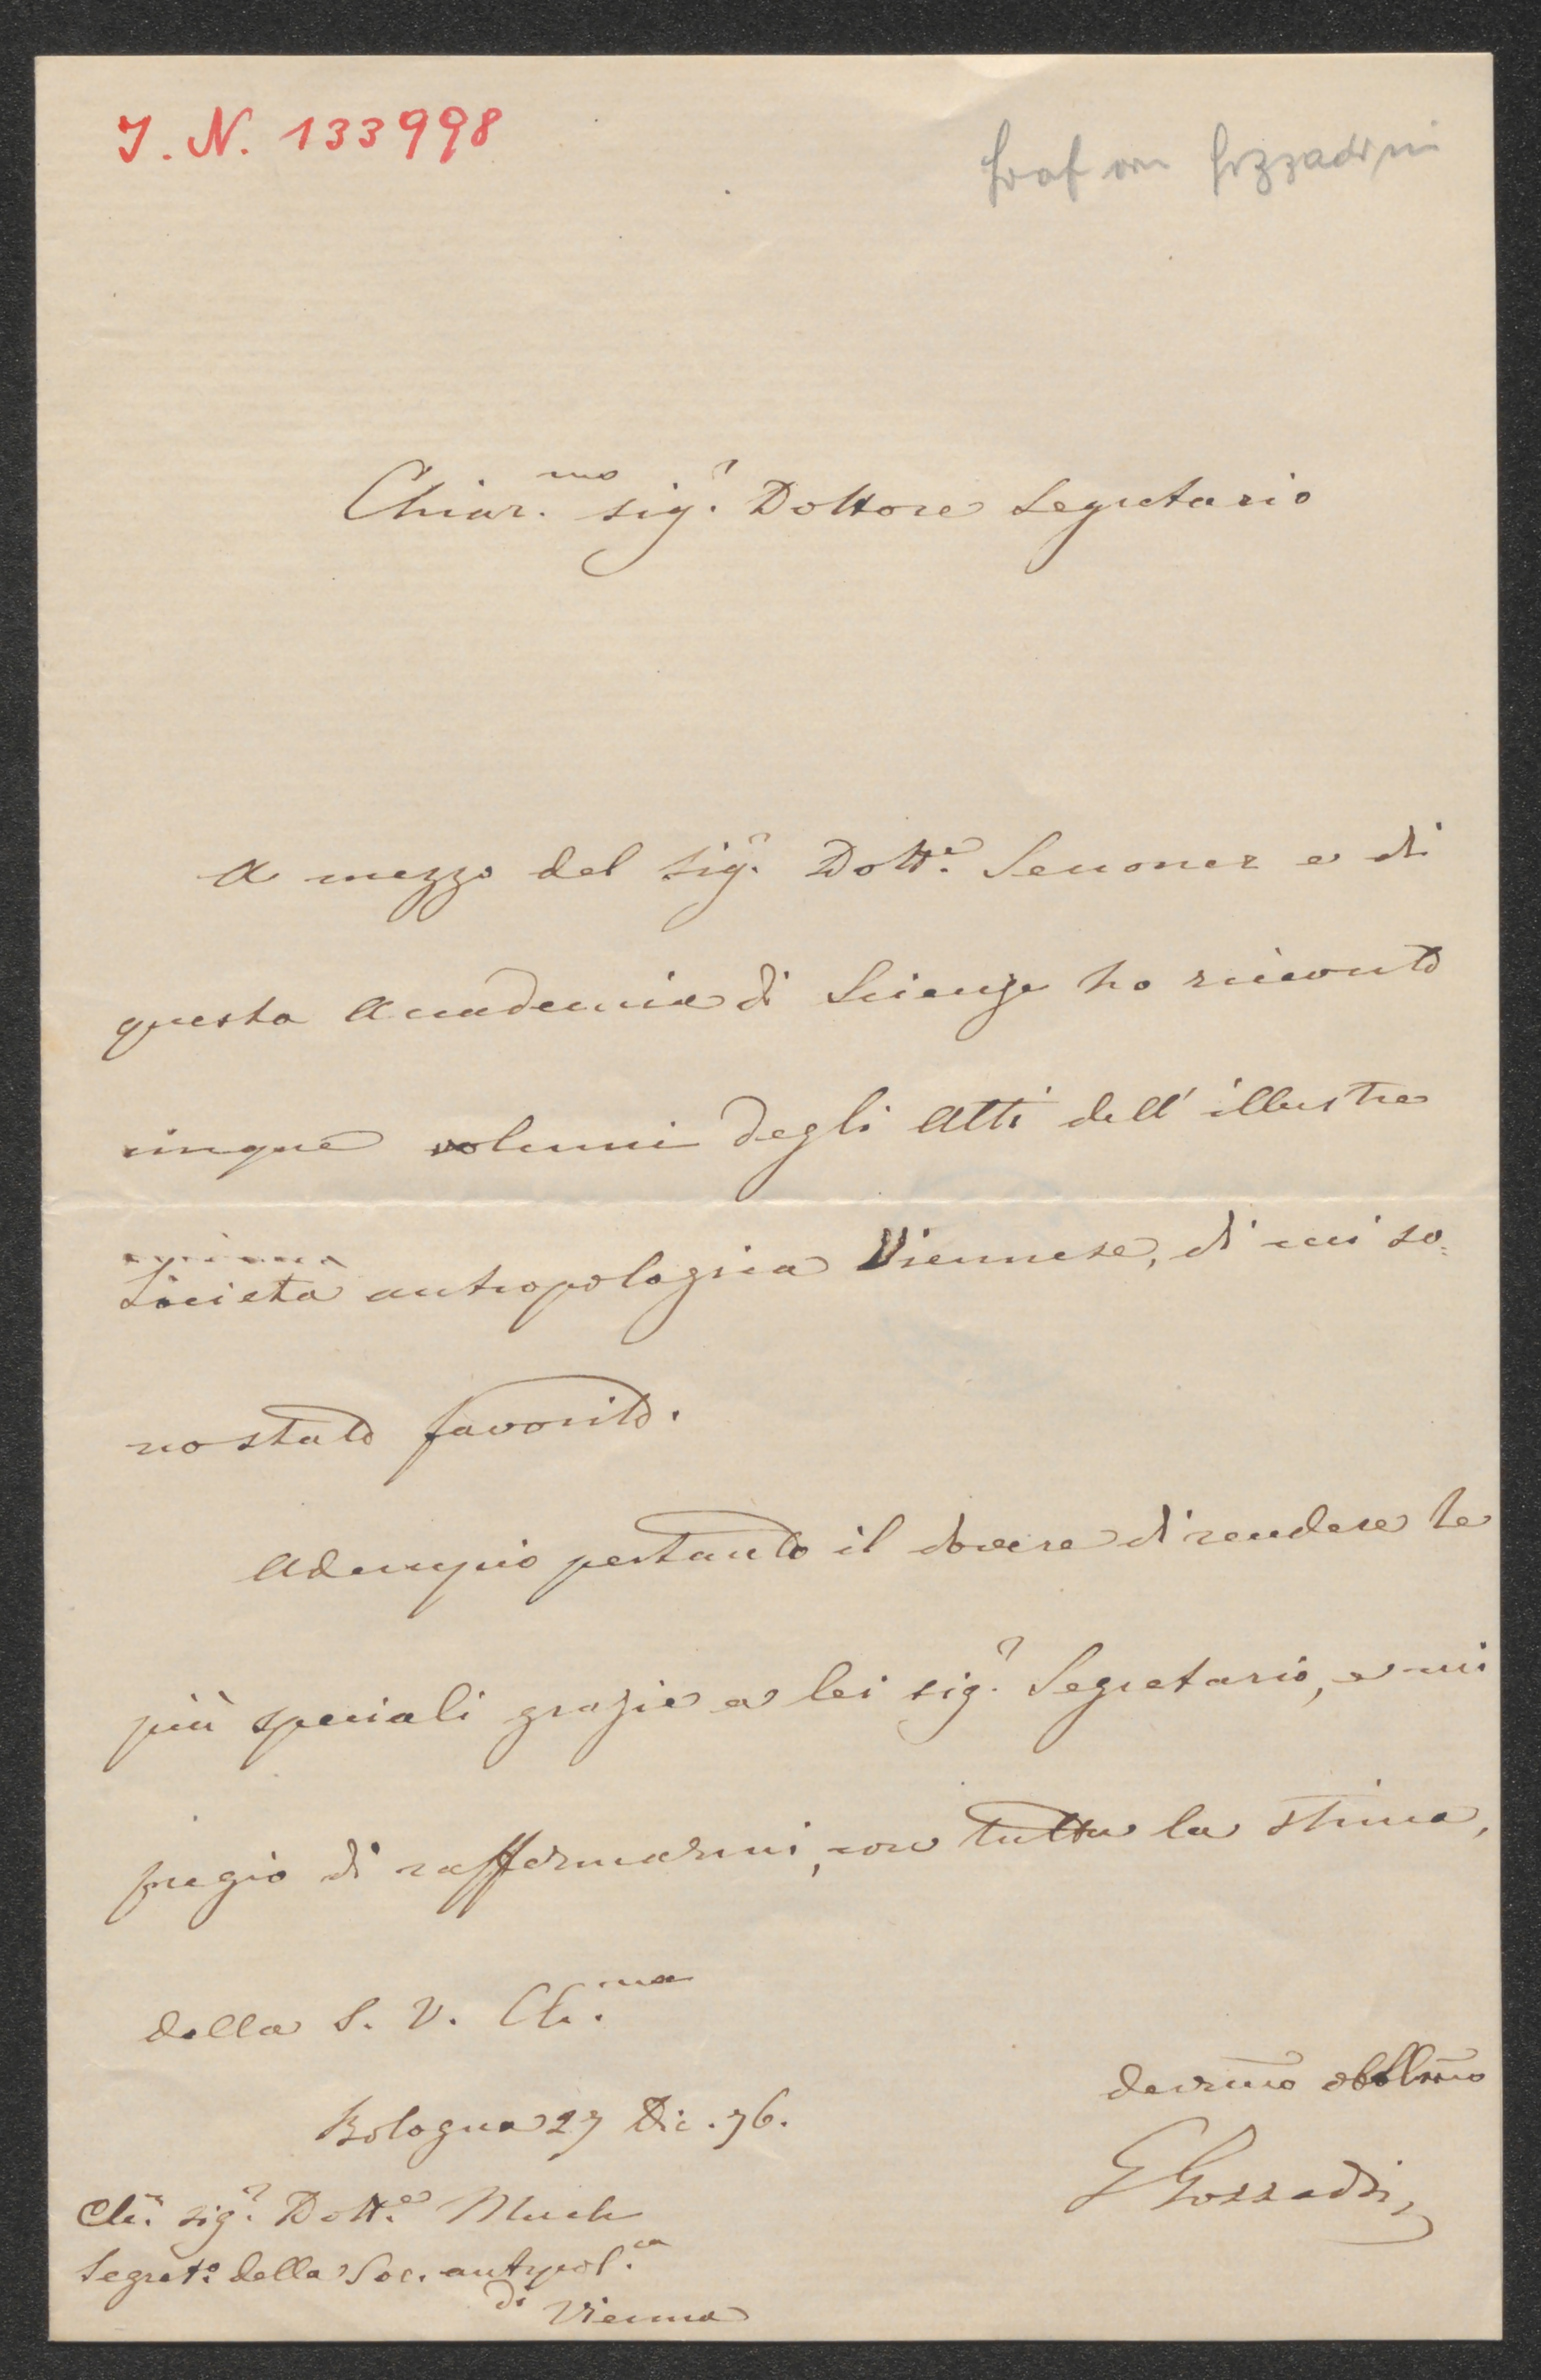 I. N. 133998
Graf von Gozzadini
Chiar.mo sig.r Dottore Segretario
A mezzo del sig.r Dott.e Senoner e di
questa Accademia di Scienze ho ricevuto
cinque volumi degli Atti dell' illustre
Società antropologica Viennese, di cui so=
no stato favorito.
Adempio pertanto il dovere di rendere le
più speciali grazie a lei sig.r Segretario, e mi
pregio di raffermarmi, con tutta la stima,
della S. V. Ch.ma
devmo obblmo
Bologna 27 Dic. 76.
G Gozzadini
Ch.o sig.r Dott.e Much
Segret.o della Soc. antropol.ca
di Vienna